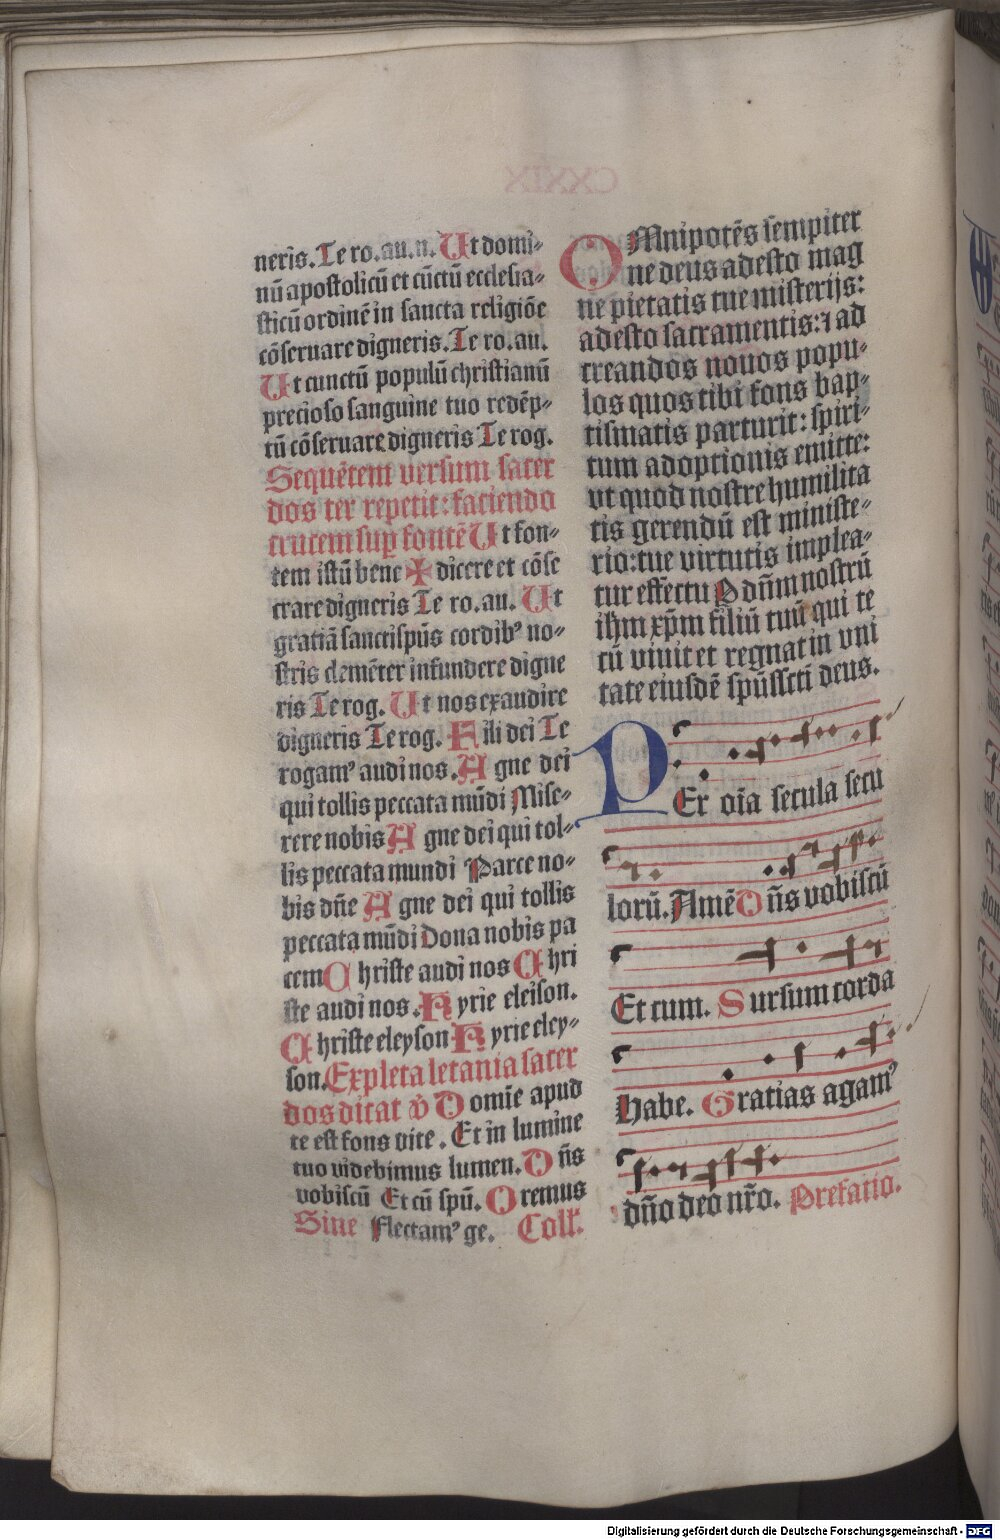 neris. Te ro. au. n. Ut domi-
nū apostolicū et cūctū ecclesia-
sticū ordinē in sancta religiōe
cōseruare digneris. Te ro. au.
Ut cunctū populū christianū
precioso sanguine tuo redēp-
tū cōseruare digneris Te rog.
Sequētem uersum sacer
dos ter repetit: faciendo
crucem sup fontē Ut fon-
tem istū bene ✠ dicere et cōse
crare digneris Te ro. au. Ut
gratiā sancti spūs cordibꝰ no-
stris clemēter infundere digne
ris Te rog. Ut nos exaudire
digneris Te rog. Fili dei Te
rogamꝰ audi nos. Agne dei
qui tollis peccata mūdi Mise-
rere nobis Agne dei qui tol-
lis peccata mundi Parce no-
bis dn̄e Agne dei qui tollis
peccata mūdi Dona nobis pa
cem Christe audi nos Chri
ste audi nos. Kyrie eleison.
Christe eleyson Kyrie eley-
son. Expleta letania sacer
dos dicat ꝟ Domīe apud
te est fons uite. Et in lumine
tuo uidebimus lumen. Dn̄s
uobiscū Et cū spū. Oremus
Sine Flectamꝰ ge. Coll'.
OMnipotēs sempiter
ne deus adesto mag
ne pietatis tue misterijs:
adesto sacramentis: ⁊ ad
creandos nouos popu-
los quos tibi fons bap-
tismatis parturit: spiri-
tum adoptionis emitte:
ut quod nostre humilita
tis gerendū est ministe-
rio: tue virtutis implea-
tur effectu P dn̄m nostrū
ihm xp̄m filiū tuū qui te
cū viuit et regnat in vni
tate eiusdē sp̄ūsscti deus.
PEr oīa secula secu
lorū. Amē Dn̄s vobiscū
Et cum. Sursum corda
Habe. Gratias agamꝰ
dn̄o deo nr̄o. Prefatio.
Digitalisierung gefördert durch die Deutsche Forschungsgemeinschaft - DFG